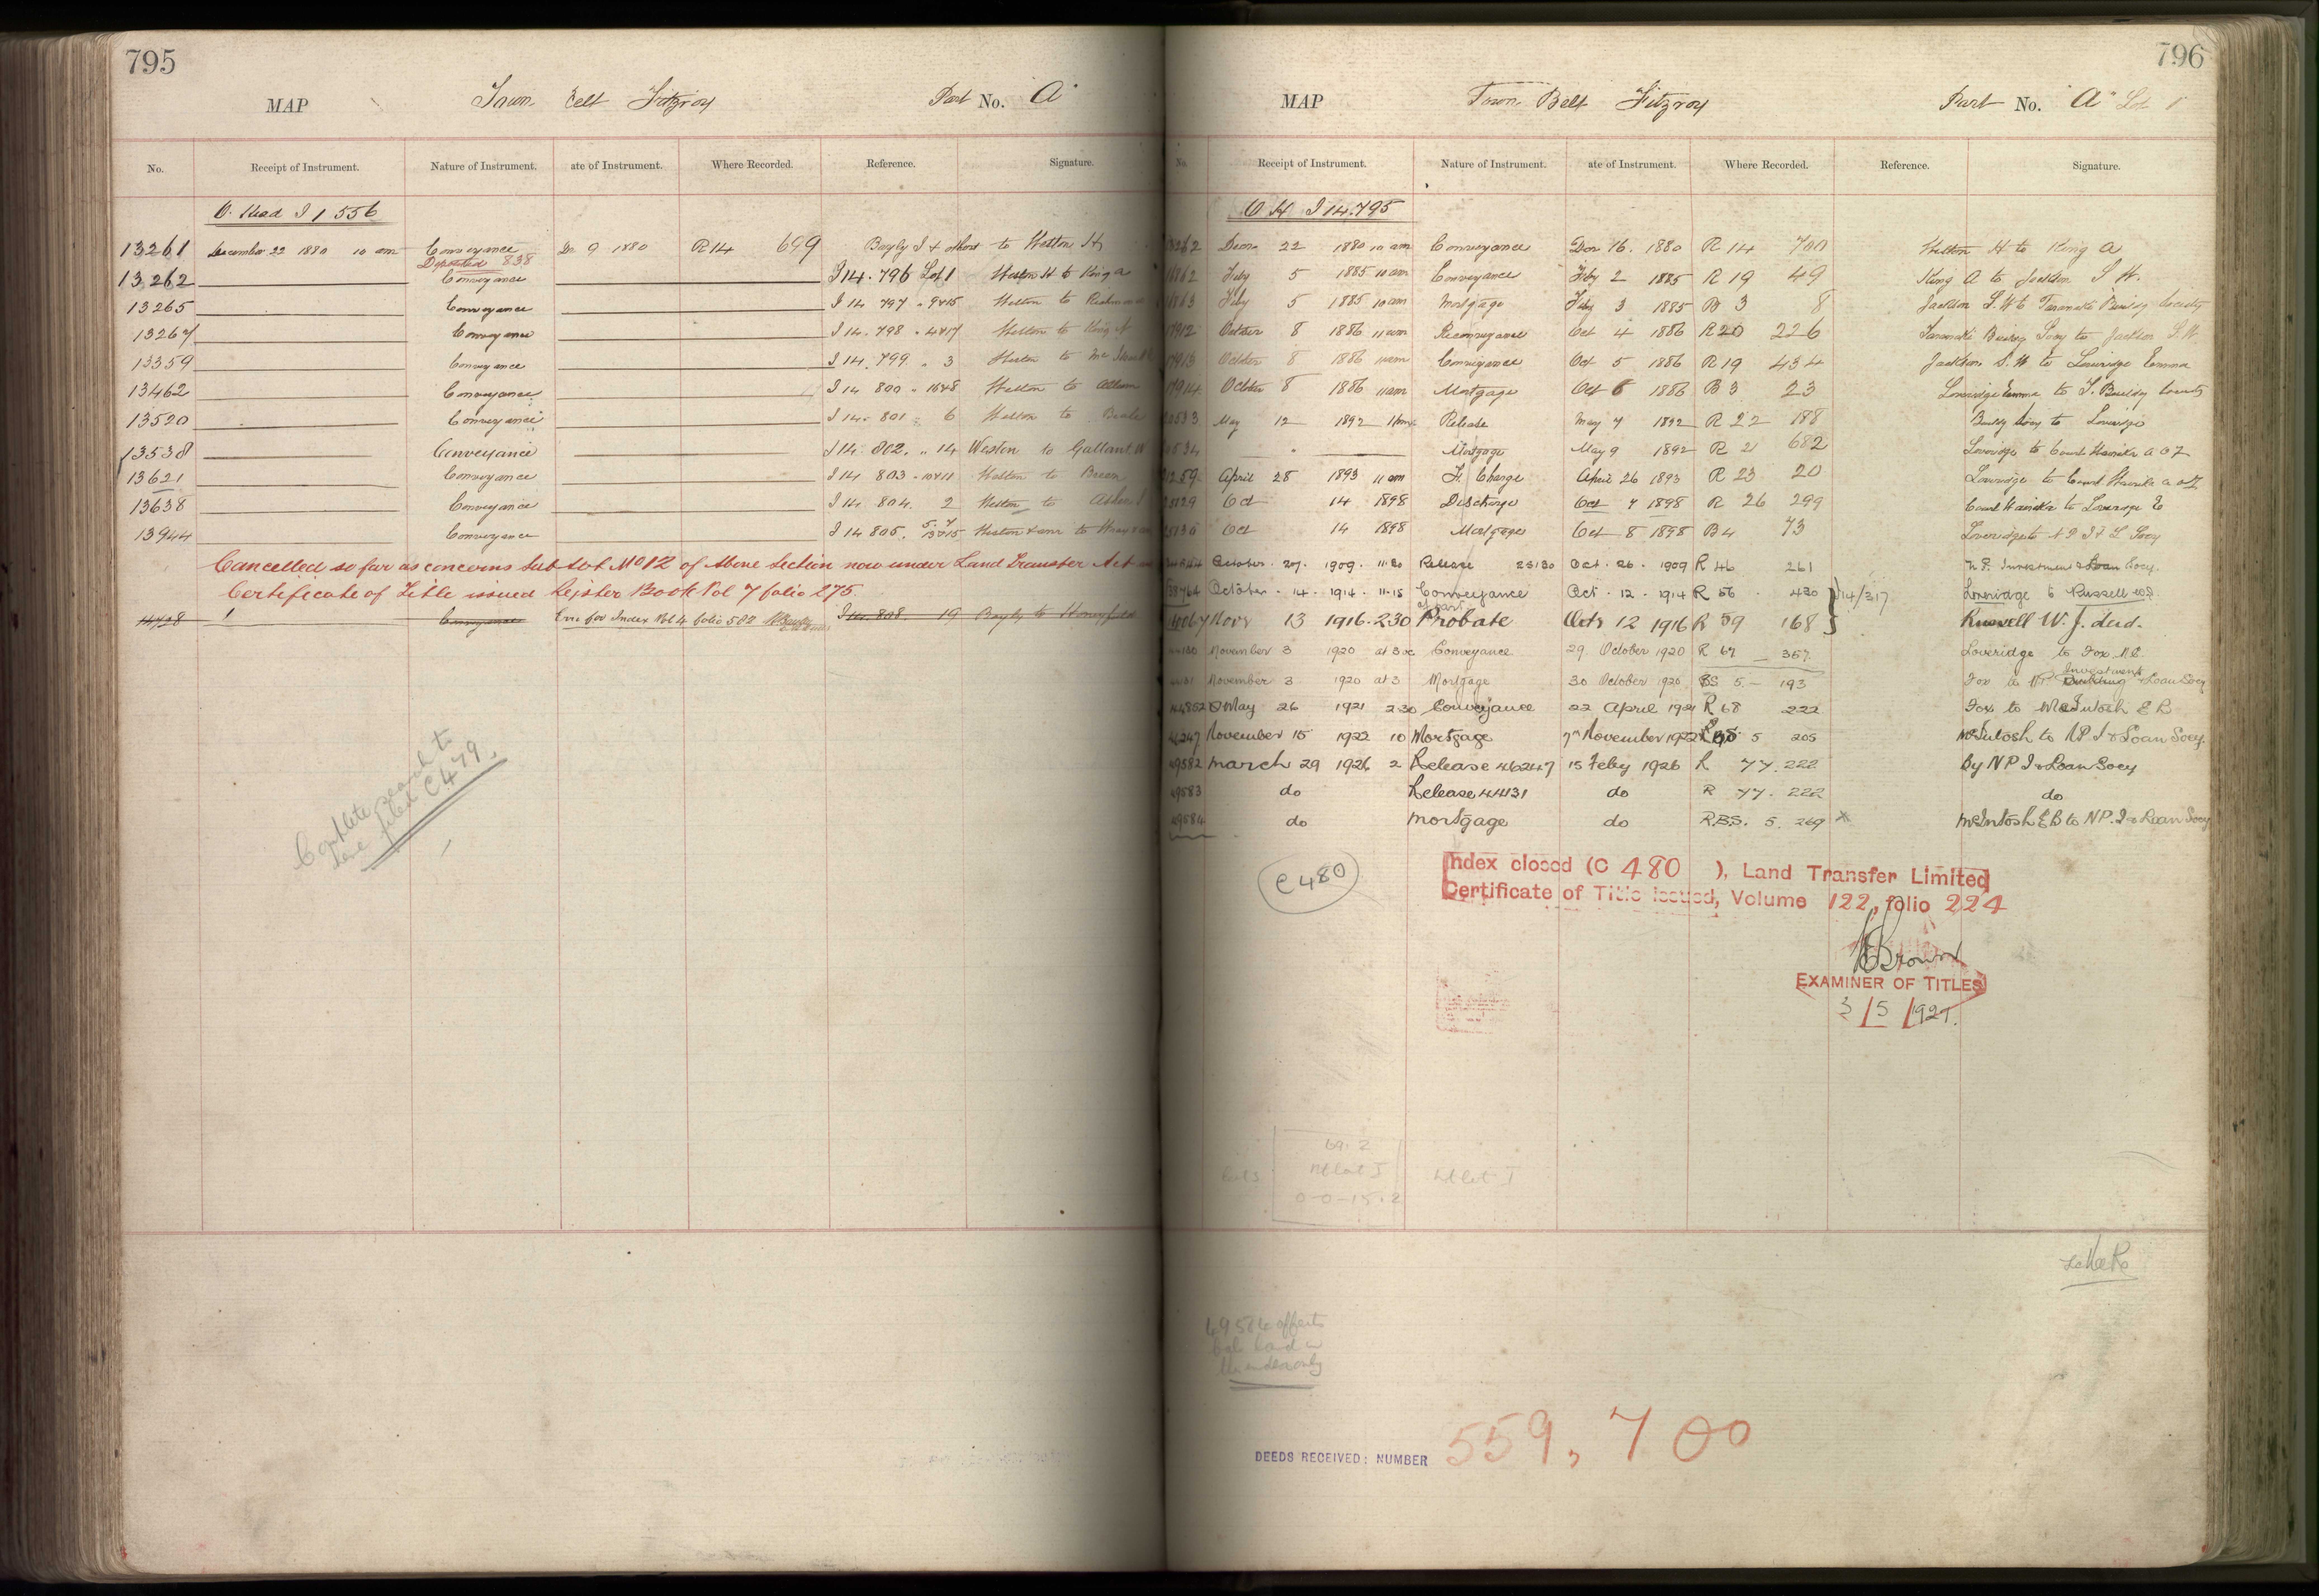 795
MAP Town Belt Fitzroy Part No. A
No. Receipt of Instrument. Nature of Instrument. ate of Instrument. Where Recorded. Reference. Signature.
O. Head I 1 556
13261 December 22 1880 10 am Conveyance De 9 1880 R14 699 Bayly I & others to Weston H
Deposited 838
13262 Conveyance I 14. 796 Lot 1 Weston H to King A
13265 Conveyance I 14 797 " 9&15 Weston to
13267 Conveyance I 14. 798 " 4&17 Weston to King A
13359 Conveyance I 14. 799 " 3 Weston to
13462 Conveyance I 14 800 " 16&8 Weston to
13520 Conveyance I 14. 801 " 6 Weston to
13538 Conveyance I 14. 802. " 14 Weston to Gallant W
13621 Conveyance I 14 803 " 10&11 Weston to
13638 Conveyance I 14 804 2 Weston to
13944 Conveyance I 14 805. Weston & anr to
Cancelled so far as concerns Sub Lot No 12 of above Section now under Land Transfer Act
Certificate of Title issued Register Book Vol 7 folio 275.
Conveyance for Index Vol 4 folio 582 I 14 808 19 Bayly to Honeyfield
Complete search to
here filed C479.
796
MAP Town Belt Fitzroy Part No. "A" Lot 1
No. Receipt of Instrument. Nature of Instrument. ate of Instrument. Where Recorded. Reference. Signature.
O H I 14. 795
13262 Decr 22 1880 10 am Conveyance Dec 16. 1880 R 14 700 Weston H to King A
Feby 5 1885 10 am Conveyance Feby 2 1885 R 19 49 King A to Jackson S W.
Feby 5 1885 10 am Mortgage Feby 3 1885 B 3 8 Jackson S. W to Taranaki Buildg Society
October 8 1886 11 am Reconveyance Oct 4 1886 R20 226 Taranaki Buildg Socy to Jackson S. W
October 8 1886 11am Conveyance Oct 5 1886 R 19 434 Jackson S. W to Loveridge Emma
October 8 1886 11am Mortgage Oct 6 1886 B 3 23 Loveridge Emma to T. Buildg Society
May 12 1892 Release May 7 1892 R 22 188 Buildg Socy to Loveridge
" Mortgage May 9 1892 R 21 682 Loveridge to Court
April 28 1893 11 am F. Charge April 26 1893 R 23 20 Loveridge to Court
Oct 14 1898 Discharge Oct 7 1898 R 26 299 Court to Loveridge E
Oct 14 1898 Mortgage Oct 8 1898 B4 73 Loveridge to N P I & L Socy
October. 27. 1909. 11.30 Release 25130 Oct. 26. 1909 R 46 261 N. P. Investment & Loan Socy.
October. 14. 1914. 11.15 Conveyance Oct. 12. 1914 R 56 430 } 14/317 Loveridge to Russell W.J.
of part
Novr 13 1916. 2.30 Probate Octr 12 1916 R 59 168 } Russell W. J. decd.
November 3 1920 at 3 Conveyance 29 October 1920 R 67 357 Loveridge to Fox
November 3 1920 at 3 Mortgage 30 October 1920 BS 5 – 193 Fox to NP Building Investment & Loan Socy
May 26 1921 2.30 Conveyance 22 April 1921 R 68 222 Fox to McIntosh E B
46247 November 15 1922 10 Mortgage 7th November 1922 RBS 5 205 McIntosh to NP I & Loan Socy.
49582 March 29 1926 2 Release 46247 15 Feby 1926 R 77. 222 By NP I & Loan Socy
49583 do Release 44131 do R 77. 222 do
49584 do Mortgage do R.B.S. 5. 269 x McIntosh E B to NP. I & Loan Socy
C 480
Index closed (C 480 ), Land Transfer Limited
Certificate of Title issued, Volume 122, folio 224
Brown
EXAMINER OF TITLES
3 / 5 / 1927.
0-0-15.2
49584 affects
DEEDS RECEIVED: NUMBER 559,700